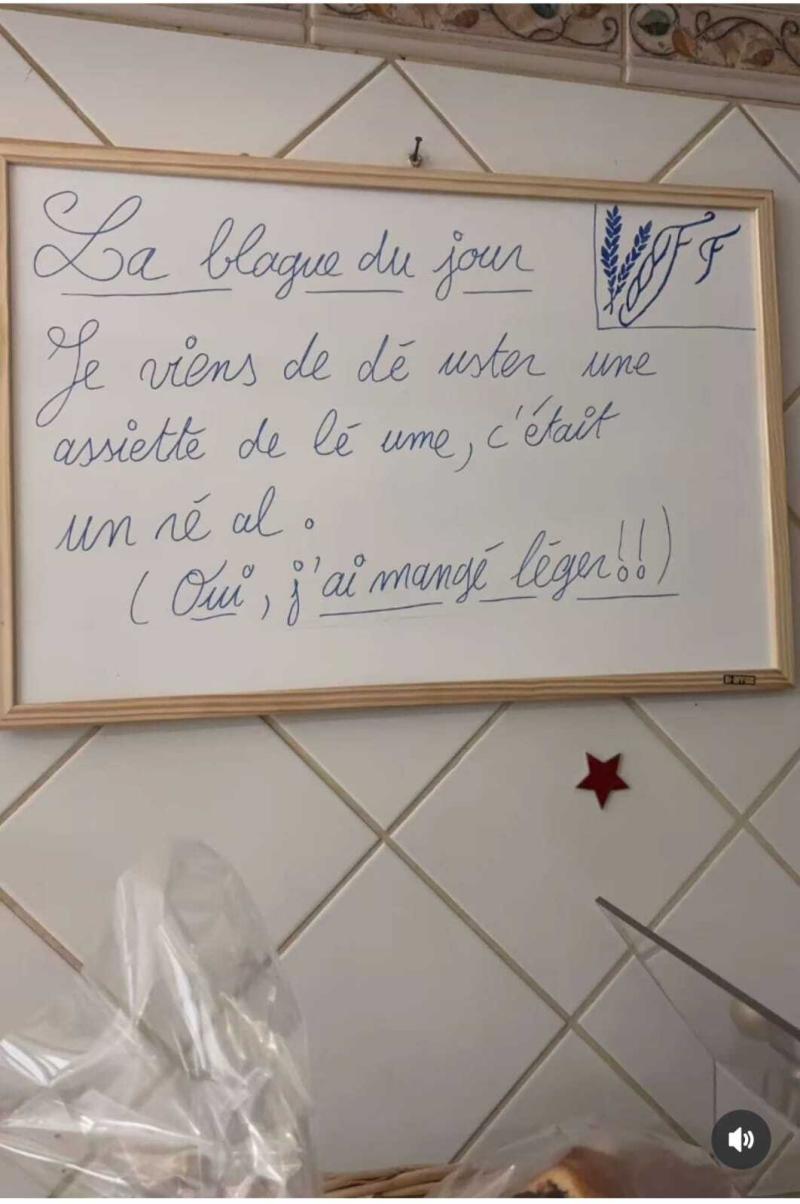 La blague du jour
FF
Je viens de dé uster une
assiette de lé ume, c'était
un ré al.
(Oui, j'ai mangé léger!!)